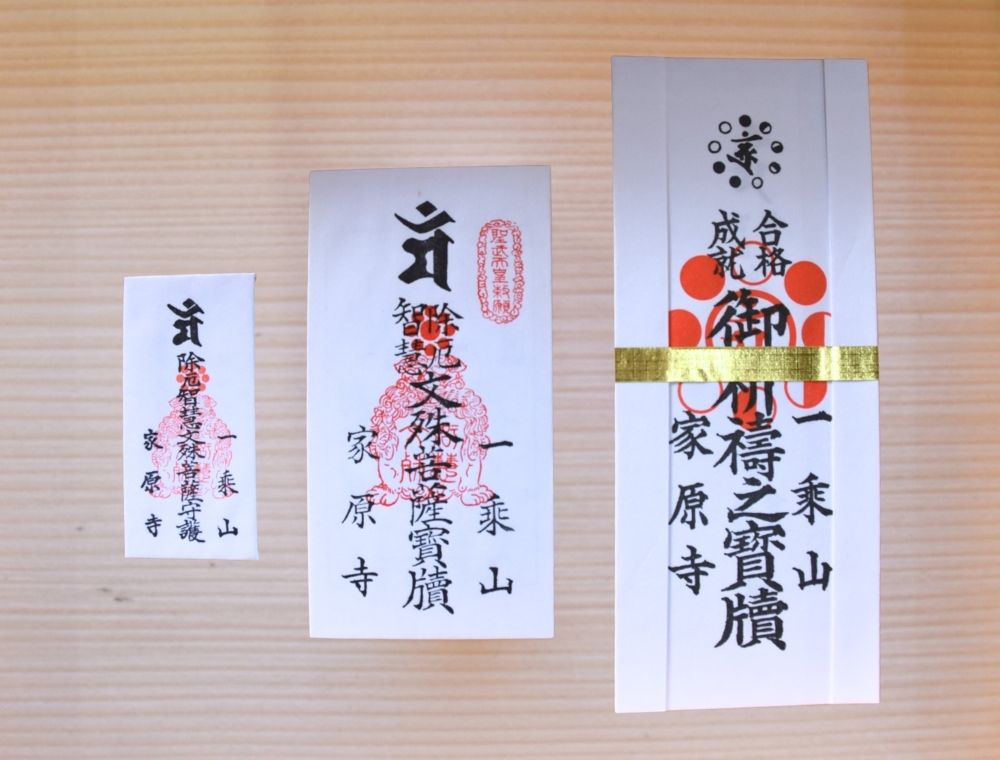 除厄智慧文殊菩薩守護
一乗山
家原寺
聖武天皇勅願
除厄
智慧
文殊菩薩寶牘
一乗山
家原寺
合格
成就
御祈禱之寶牘
一乗山
家原寺